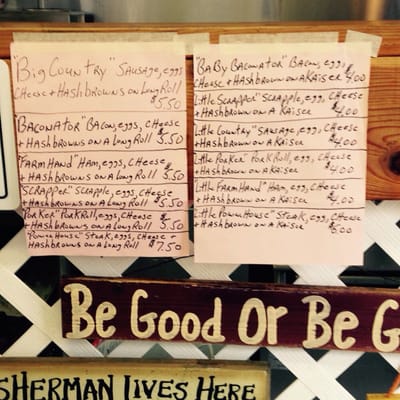 "Big Country" Sausage, eggs
Cheese + Hashbrowns on Long Roll
$5.50
"Baconator" Bacon, eggs, Cheese
+ Hashbrowns on Long Roll $5.50
"Farm Hand" Ham, eggs, Cheese
+ Hashbrowns on Long Roll $5.50
"Scrapper" Scrapple, eggs, Cheese
+ Hashbrowns on a Long Roll $5.50
"Porker" Pork Roll, eggs, Cheese
+ Hashbrowns on a Long Roll $5.50
"Powerhouse" Steak, eggs, Cheese +
Hashbrowns on a Long Roll $7.50
"Baby Baconator" Bacon, egg,
Cheese + Hashbrown on a Kaiser $4.00
Little Scrapper" Scrapple, egg, Cheese
+ Hashbrown on a Kaiser $4.00
Little Country" Sausage, egg, Cheese
+ Hashbrown on a Kaiser $4.00
Little Porker" Pork Roll, egg, Cheese
+ Hashbrown on a Kaiser $4.00
Little Farm Hand" Ham, egg, Cheese
+ Hashbrown on a Kaiser $4.00
Little Powerhouse" Steak, egg, Cheese
+ Hashbrown on a Kaiser $5.00
Be Good Or Be G
SHERMAN LIVES HERE